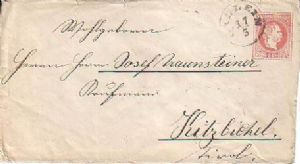 Wohlgeboren
Herrn Herrn Josef Traunsteiner
Kaufmann
Kitzbichel.
Tirol.
17
5